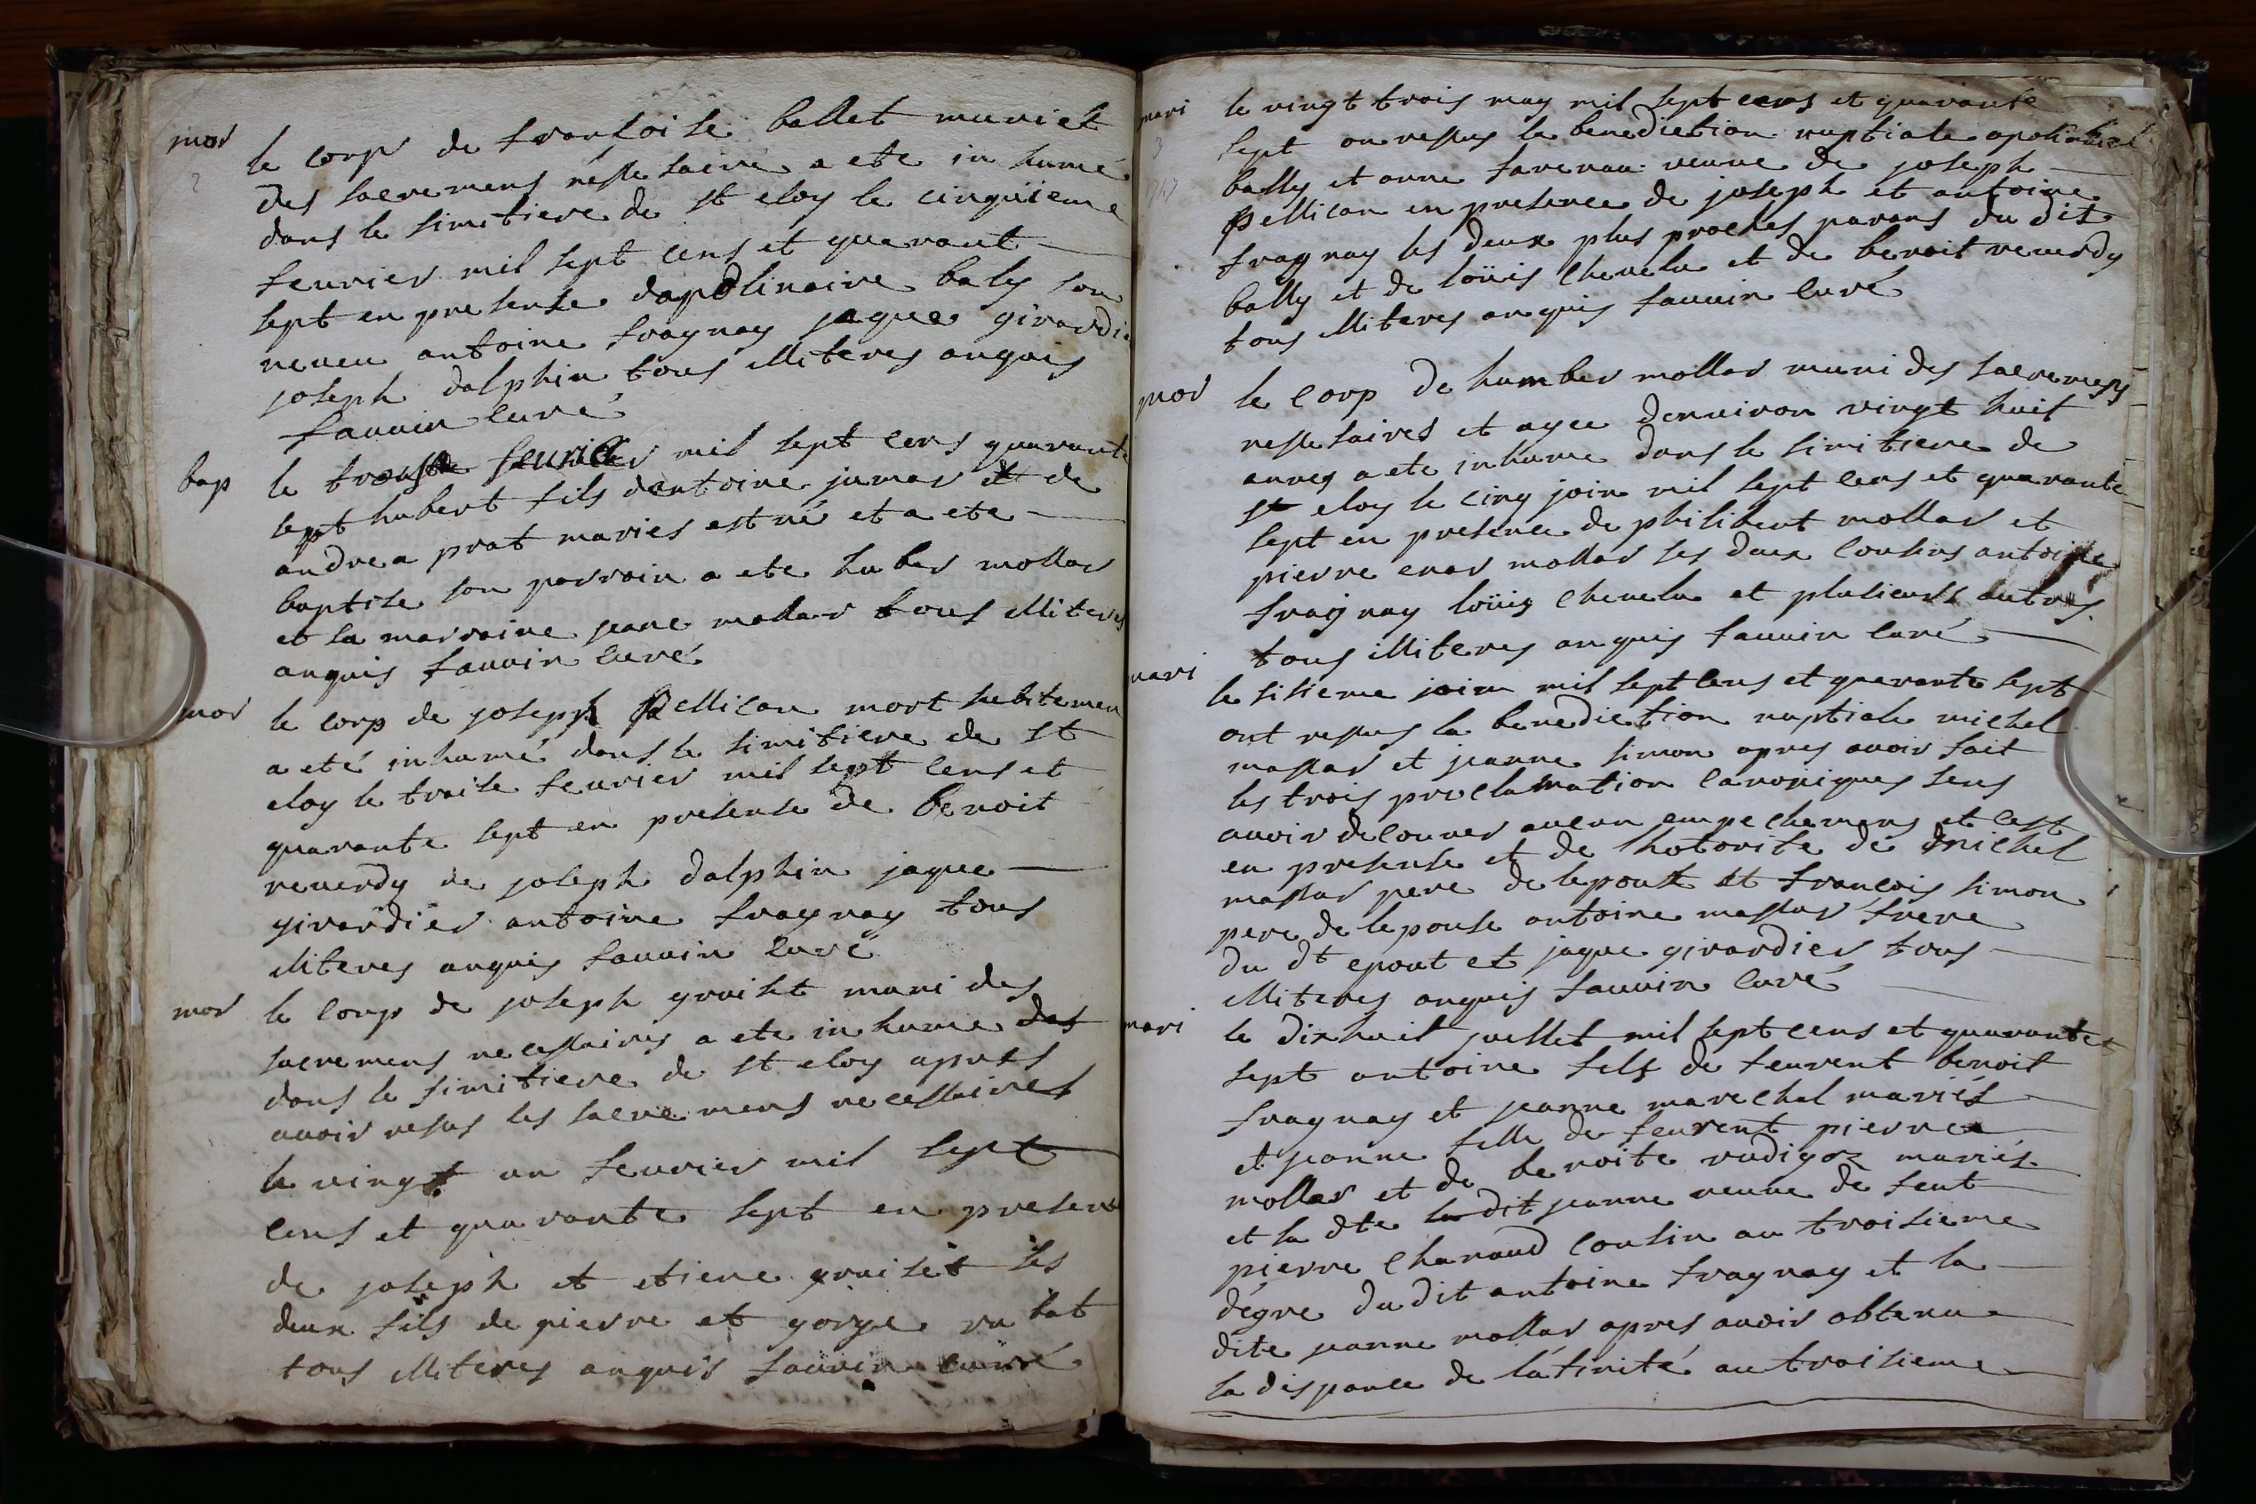 mor
le corp de francoise ballet muniet
des sacremens nessesaire a ete in humé
dans le simitiere de st eloy le cinquieme
feurier mil sept cens et quarant
sept en presense dapolinaire baly son
neveu antoine fragnay jaque girardie
joseph dalphin tous illiteres anquis
fauuin curé
bap
le feurier mil sept cens quarante
sept hubert fils dantoine jumar et de
andrea prat maries est né et a ete
baptise son parrain a ete huber mollar
et sa marraine jeane mollar tous illiteres
anquis fauuin curé
mor
le corp de joseph pellican mort subitemen
a eté inhumé dans le simitiere de st
eloy le traise feurier mil sept cens et
quarante sept en presense de benoit
reuerdy de joseph dalphin jaque
girardier antoine fragnay tous
illiteres anquis fauuin curé
mor
le corp de joseph graiset muni des
sacremens necessaires a ete in hume des
dans le simitiere de st eloy apres
auoir resus les sacre mens necessaires
le vingt un feurier mil sept
cens et quarante sept en presens
de joseph et etiene graiset ses
deux fils de pierre et gorge
tous illiteres anquis fauuin curé
mari
3
le vingt trois may mil sept cens et quarante
sept on ressus la benediction nuptiale apolinaire
bally et anne favenau veuve de joseph
pellican en presence de joseph et antoine
fragnay les deux plus proches parans du dit
bally et de loüis cheuelu et de benoit reuerdy
tous illiteres anquis fauuin curé
mor
le corp de humber mollar muni des sacremens
nessesaires et agee denuiron vingt huit
annes a ete inhume dans le simitiere de
st eloy le cinq join mil sept cens et quarante
sept en presence de philibert mollar et
pierre enar mollar ses deux cousins antoine
fraignay loüis cheuelu et plusieurs autres
tous illiteres anquis fauuin curé
mari
le sisieme join mil sept cens et quarante sept
ont ressus la benediction nuptiale michel
massar et jeanne simon apres auoir fait
les trois proclamation canoniques sens
auoir decouuer aucun empechemens et cest
en presense et de lhotorite de michel
massar pere de lepoust et francois simon
pere de lepouse antoine massar frere
du dt epout et jaque girardier tous
illiteres anquis fauuin curé
mari
le dixhuit juellet mil sept cens et quarante
sept antoine fils de feurent benoit
fragnay et jeanne marechal mariés
et jeanne fille de feurent pierre
mollar et de benoite rudigoz mariés
et la dte la dit jeanne veuue de feut
pierre chanaud cousin au troisieme
dégre du dit antoine fragnay et la
dite jeanne mollar apres auoir obtenu
la dispance de lafinité au troisieme